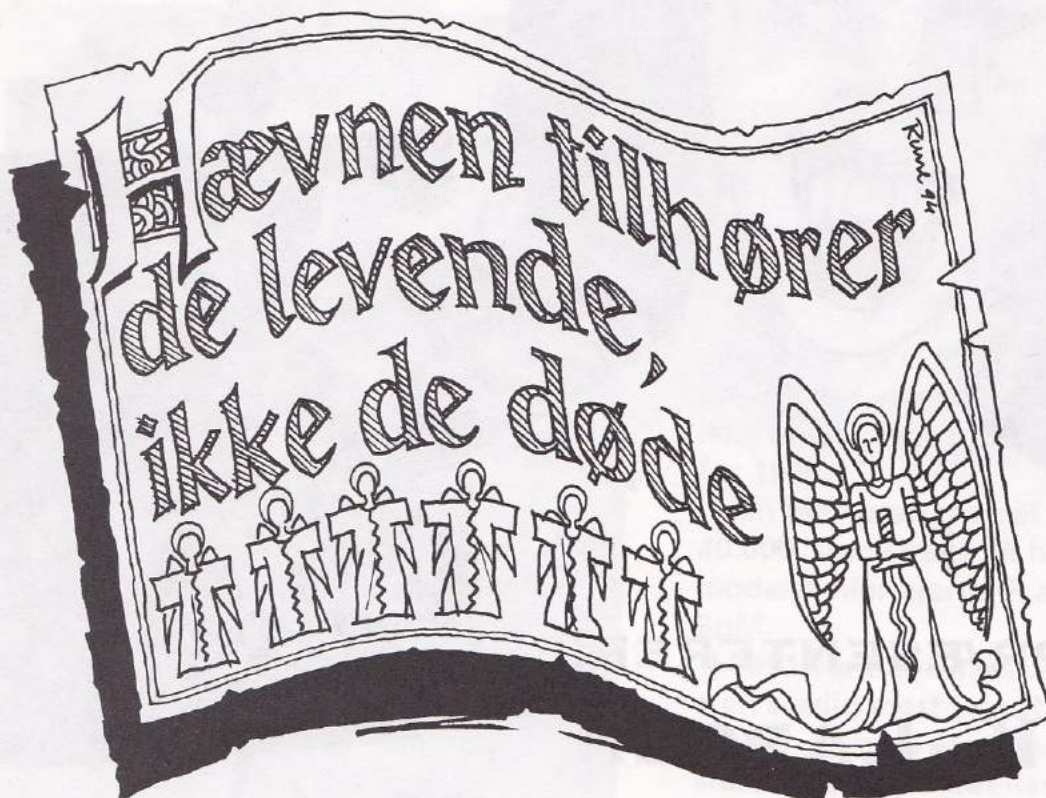 Hævnen tilhører
de levende,
ikke de døde
Rune 94